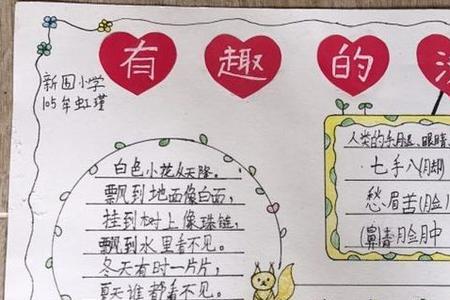 有趣的汉
新园小学
105年虹瑾
白色小花从天降。
飘到地面像白面，
挂到树上像珠链，
飘到水里看不见。
冬天有时一片片，
夏天谁都看不见。
人类的手、脚、眼睛、
七手八(脚)
愁眉苦(脸)
(鼻)青脸肿